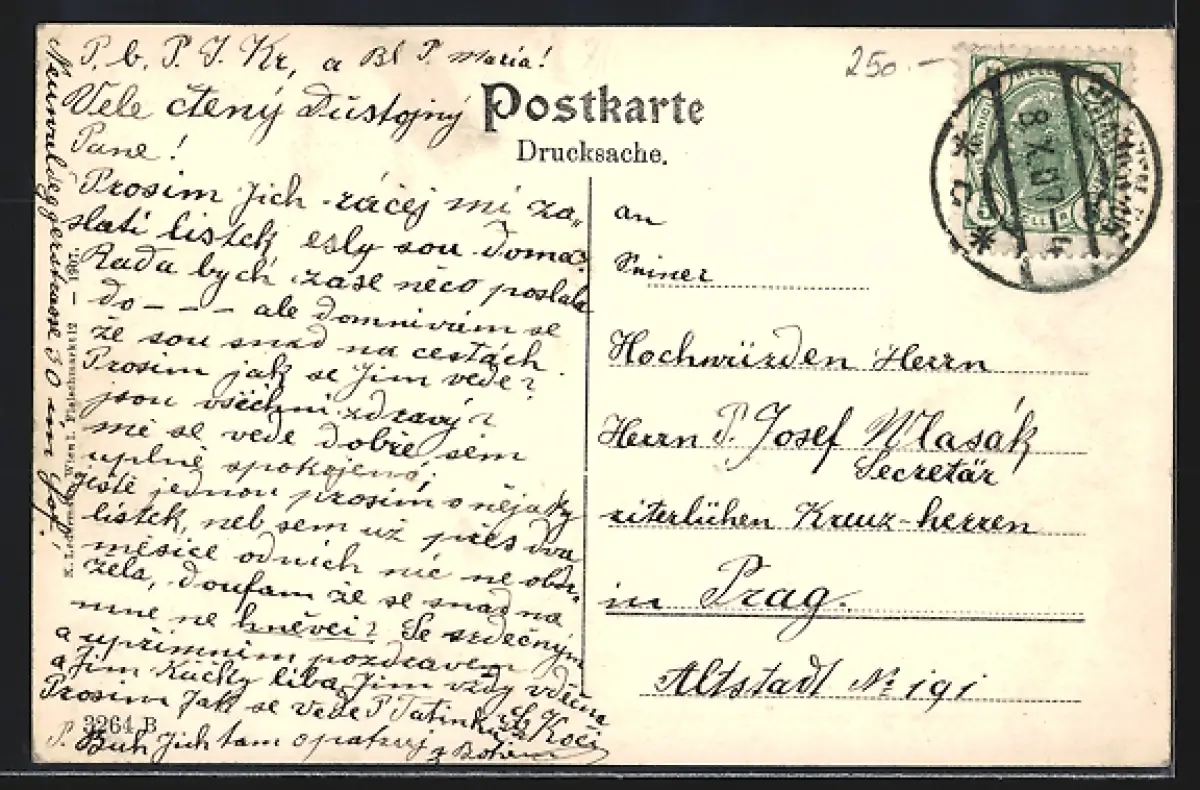 P. b. P. J. Kr, a Bl P. Maria!
Vele čtený Důstojný
Pane!
Prosim Jich ráčej mi za-
slati listek esly sou doma?
Rada bych zase něco poslala
do – – – ale domnivám se
že sou snad na cestách.
Prosim jak se Jim vede?
jsou všichni zdravý?
mě se vede dobře sem
uplně spokojená,
jistě jednou prosim o nějaky
listek, neb sem už přes dva
měsice odnich nic ne obdr-
žela, doufam že se snad na
mne ne hněvej? Se srdečným
a upřimnim pozdravem
a Jim Ručky libá Jim vždy vděčna
Prosim Jak se Vede P Tatinku
P. Buh Jich tam opatruj
z Bohem
Koči
30
250.–
Postkarte
Drucksache.
an
Seiner
Hochwürden Herrn
Herrn P. Josef Wlasák
Secretär
riterlichen Kreuz-herren
in Prag.
Altstadt No 191
K. Ledermann, Wien I. Fleischmarkt 12 — 1907.
3264 B
5
5
8.X.07